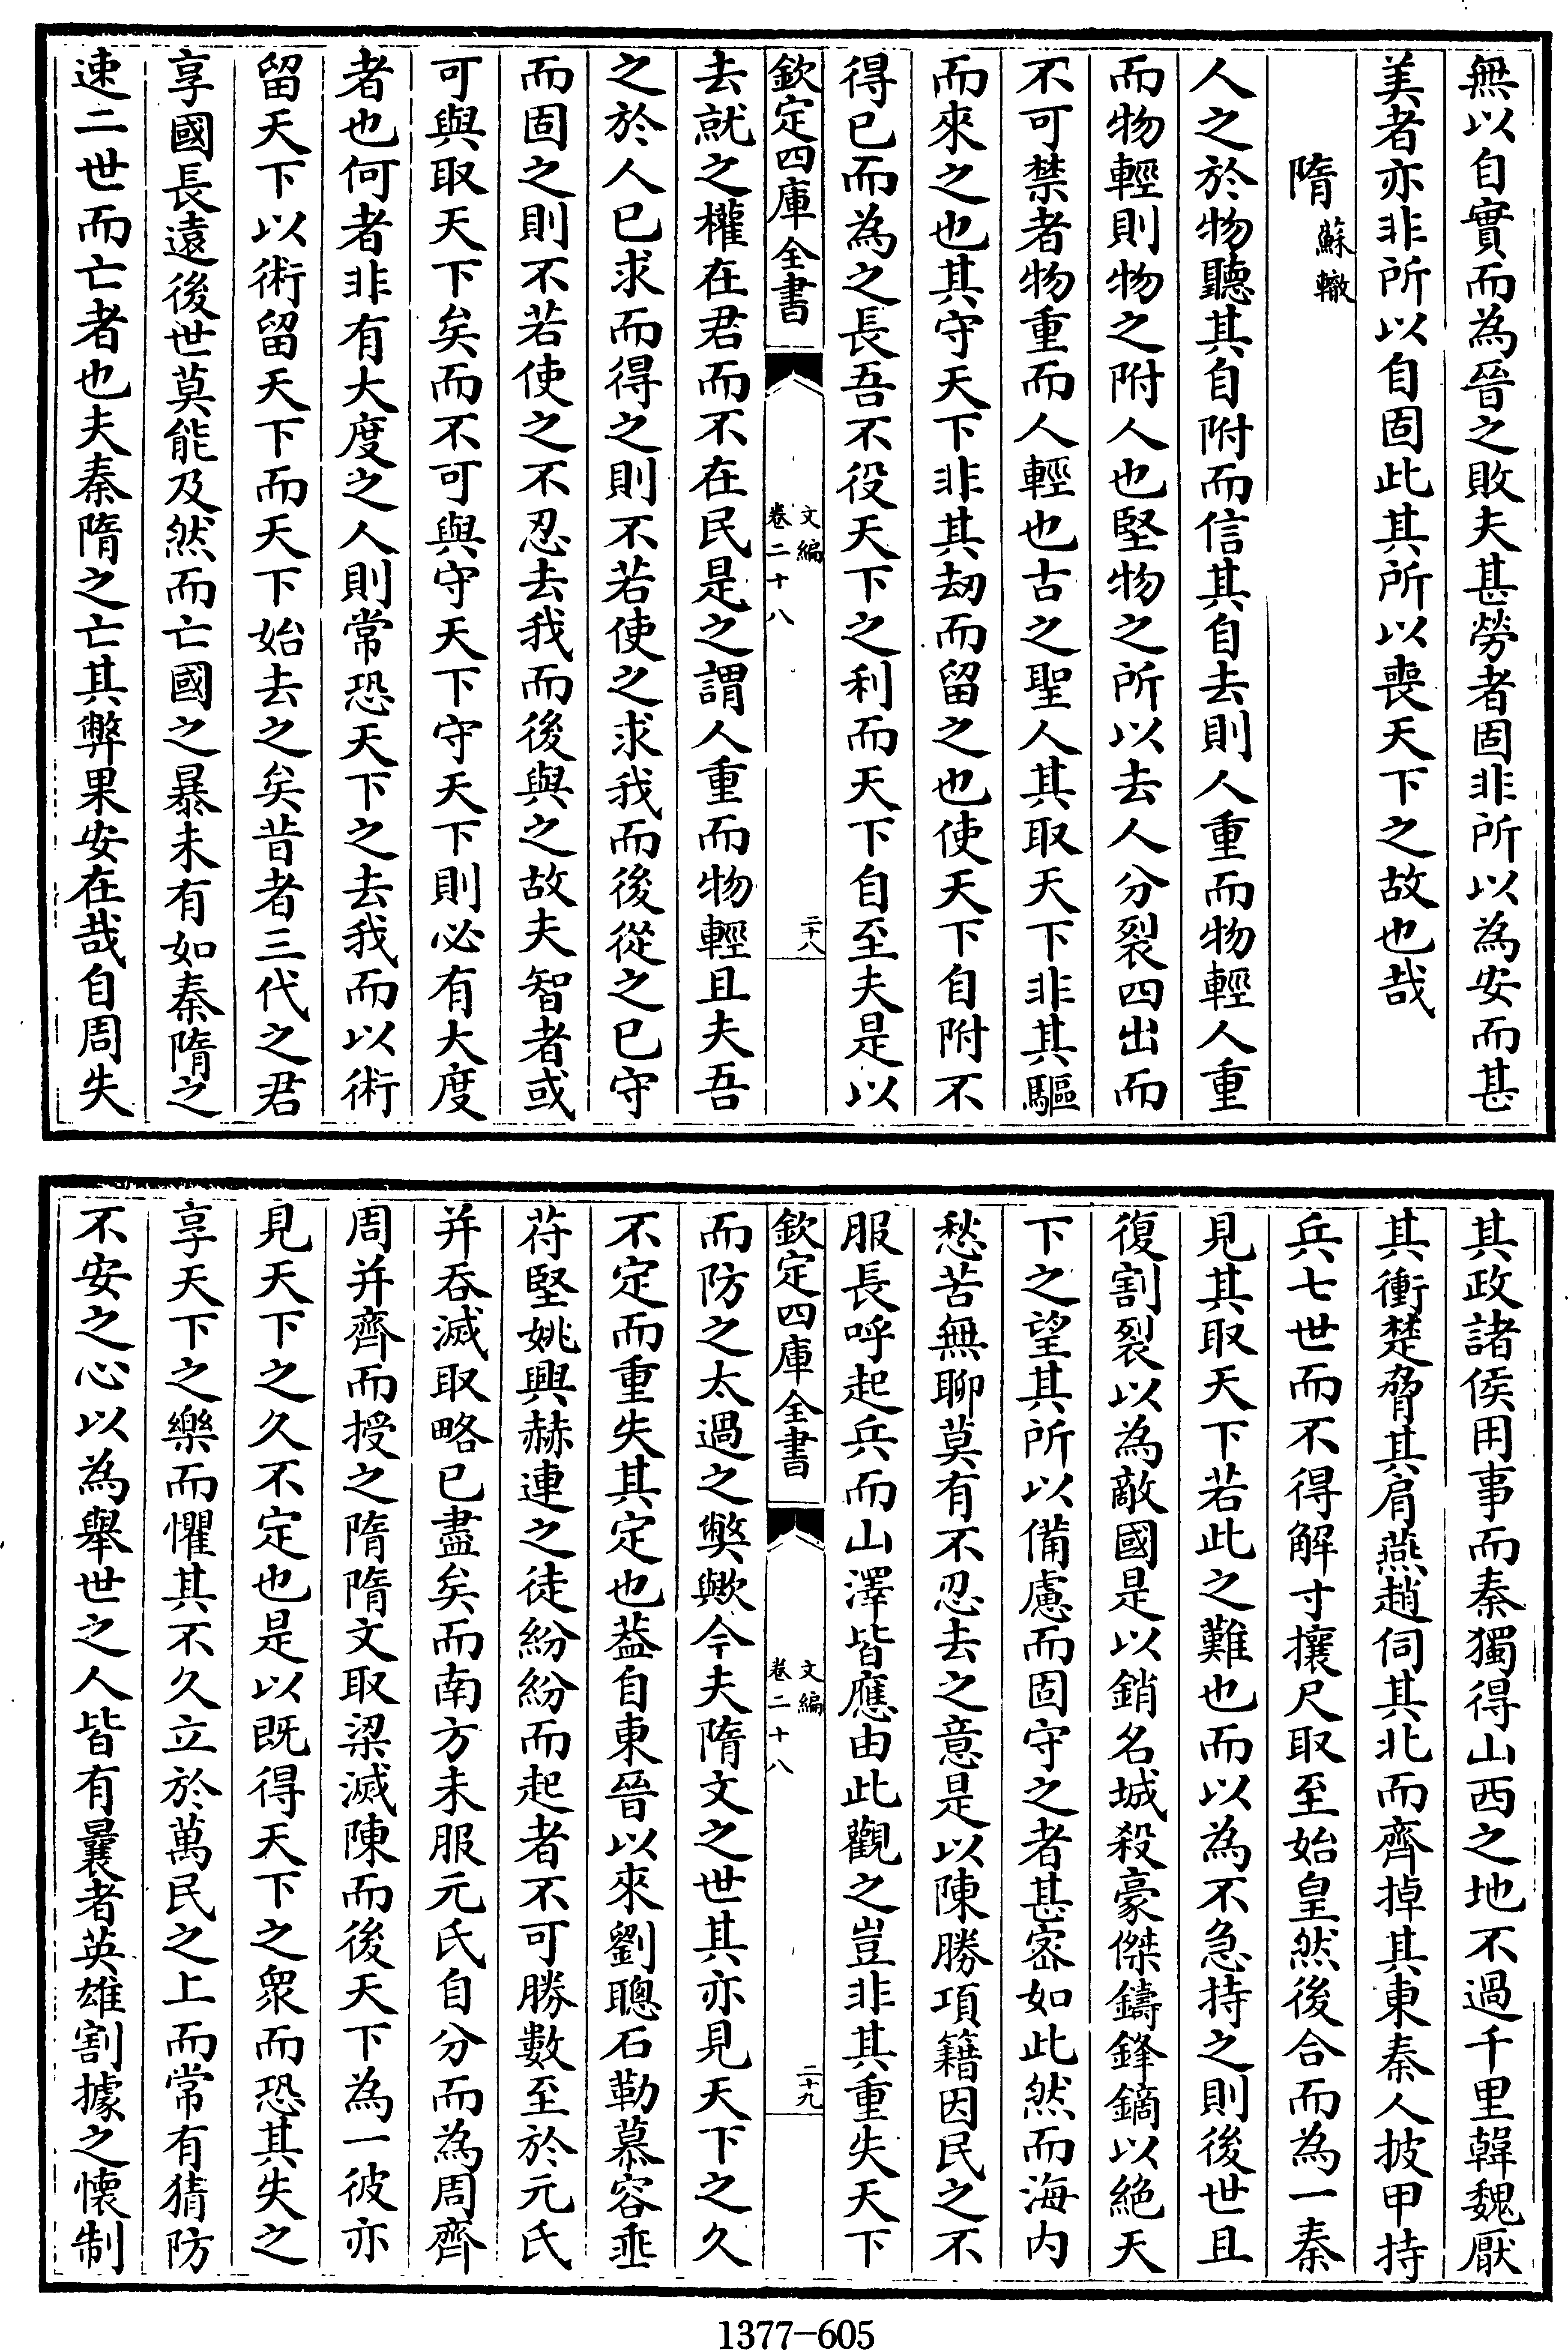 無以自實而為晉之敗夫甚勞者固非所以為安而甚
美者亦非所以自固此其所以喪天下之故也哉
隋蘇轍
人之於物聽其自附而信其自去則人重而物輕人重
而物輕則物之附人也堅物之所以去人分裂四出而
不可禁者物重而人輕也古之聖人其取天下非其驅
而來之也其守天下非其刼而留之也使天下自附不
得已而為之長吾不役天下之利而天下自至夫是以
欽定四庫全書
文編
卷二十八
二十八
去就之權在君而不在民是之謂人重而物輕且夫吾
之於人已求而得之則不若使之求我而後從之已守
而固之則不若使之不忍去我而後與之故夫智者或
可與取天下矣而不可與守天下守天下則必有大度
者也何者非有大度之人則常恐天下之去我而以術
留天下以術留天下而天下始去之矣昔者三代之君
享國長遠後世莫能及然而亡國之暴未有如秦隋之
速二世而亡者也夫秦隋之亡其弊果安在哉自周失
其政諸侯用事而秦獨得山西之地不過千里韓魏厭
其衝楚脅其肩燕趙伺其北而齊掉其東秦人披甲持
兵七世而不得解寸攘尺取至始皇然後合而為一秦
見其取天下若此之難也而以為不急持之則後世且
復割裂以為敵國是以銷名城殺豪傑鑄鋒鏑以絕天
下之望其所以備慮而固守之者甚宻如此然而海内
愁苦無聊莫有不忍去之意是以陳勝項籍因民之不
服長呼起兵而山澤皆應由此觀之豈非其重失天下
欽定四庫全書
文編
卷二十八
二十九
而防之太過之弊歟今夫隋文之世其亦見天下之久
不定而重失其定也葢自東晉以來劉聰石勒慕容垂
苻堅姚興赫連之徒紛紛而起者不可勝數至於元氏
并吞滅取略已盡矣而南方未服元氏自分而為周齊
周并齊而授之隋隋文取梁滅陳而後天下為一彼亦
見天下之久不定也是以既得天下之衆而恐其失之
享天下之樂而懼其不久立於萬民之上而常有猜防
不安之心以為舉世之人皆有曩者英雄割據之懷制
1377-605